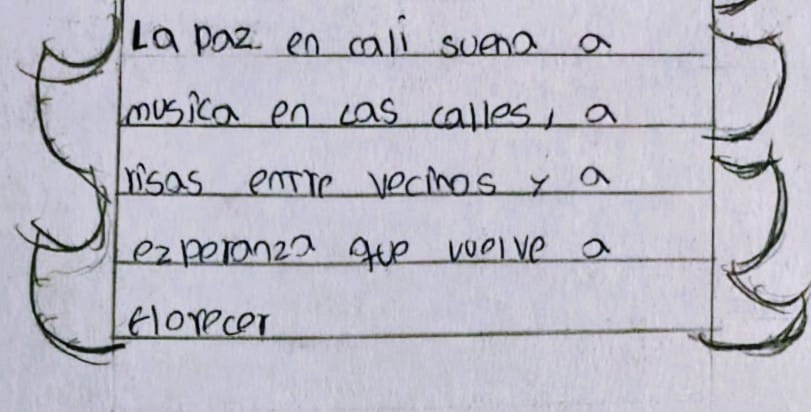 La paz en cali suena a
musica en las calles, a
risas entre vecinos y a
ezperanza que vuelve a
florecer